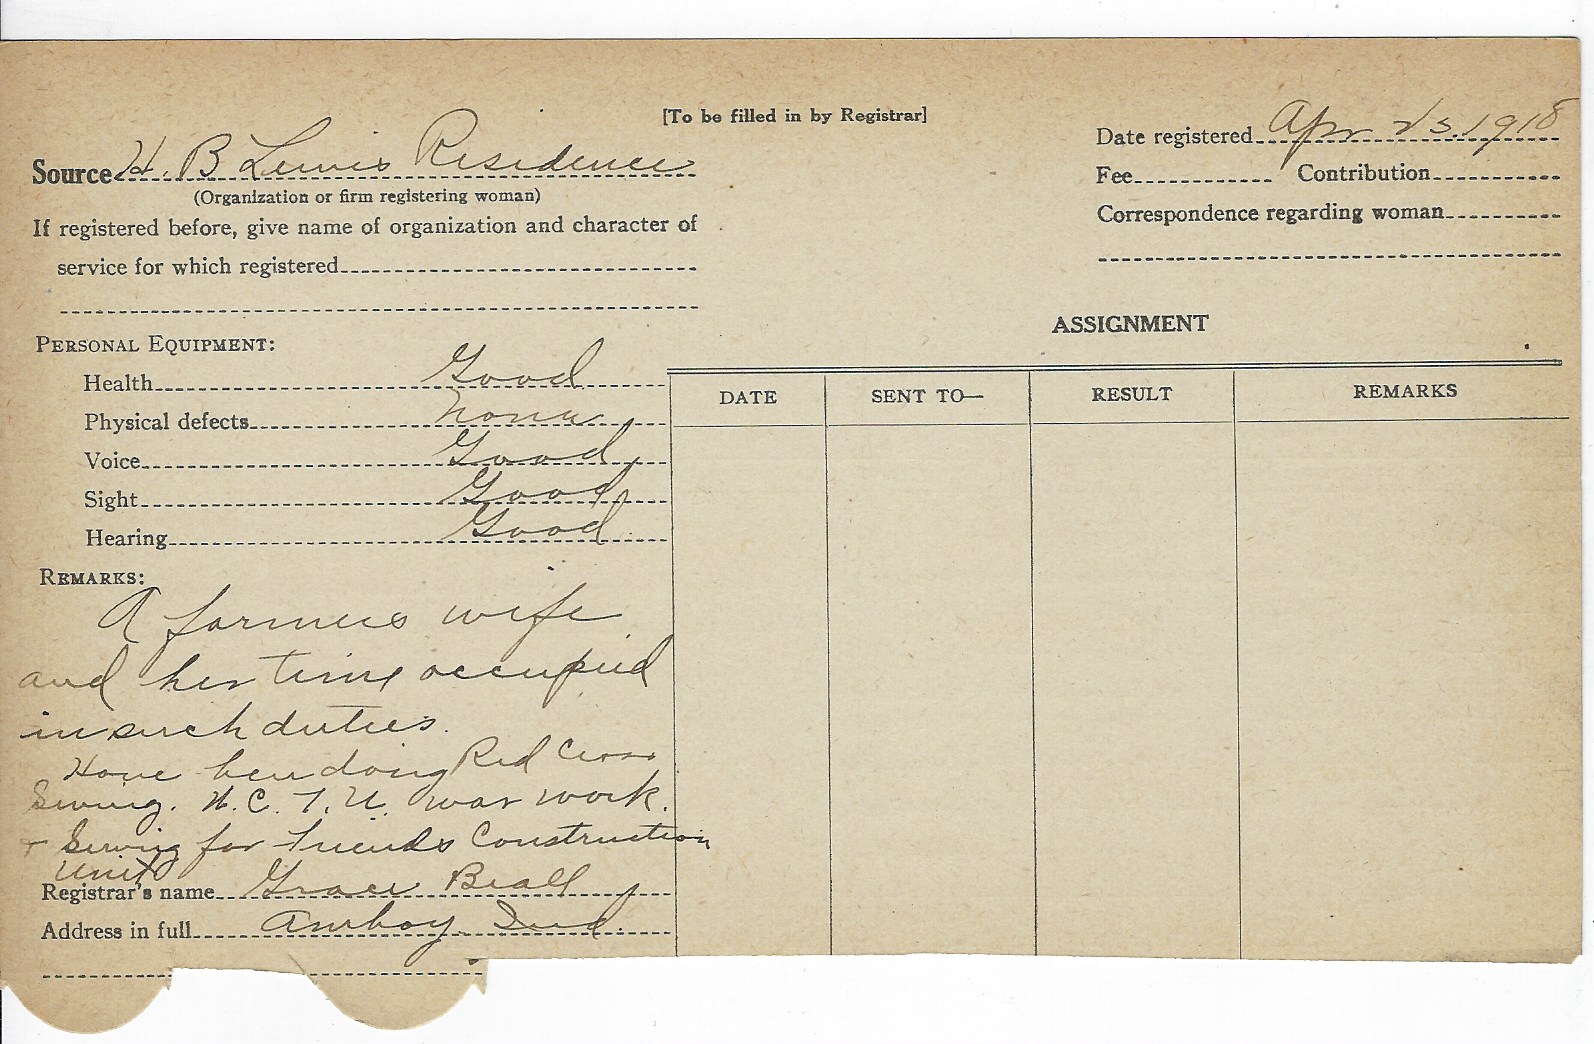 [To be filled in by Registrar]
Source H. B Lewis Residence
(Organization or firm registering woman)
If registered before, give name of organization and character of
service for which registered
Date registered Apr 1918
Fee Contribution
Correspondence regarding woman
PERSONAL EQUIPMENT:
Health Good
Physical defects none
Voice Good
Sight Good
Hearing Good
REMARKS:
A farmers wife
and her time occupied
in such duties.
Have been doing Red Cross
Sewing. W. C. T. U. war work.
+ Sewing for Friends Construction
Unit
Registrar's name Grace Beall
Address in full Amboy, Ind.
ASSIGNMENT
DATE SENT TO— RESULT REMARKS